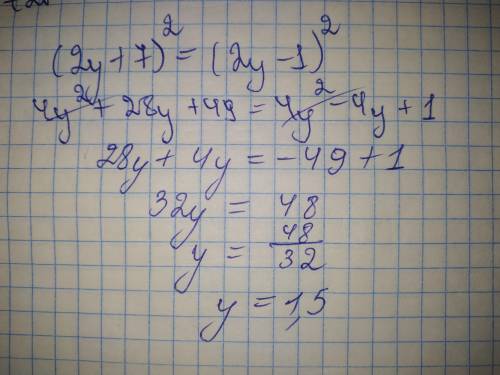 (2y+7)² = (2y-1)²
4y² + 28y + 49 = 4y² - 4y + 1
28y + 4y = -49 + 1
32y = 48
y = 48/32
y = 1,5